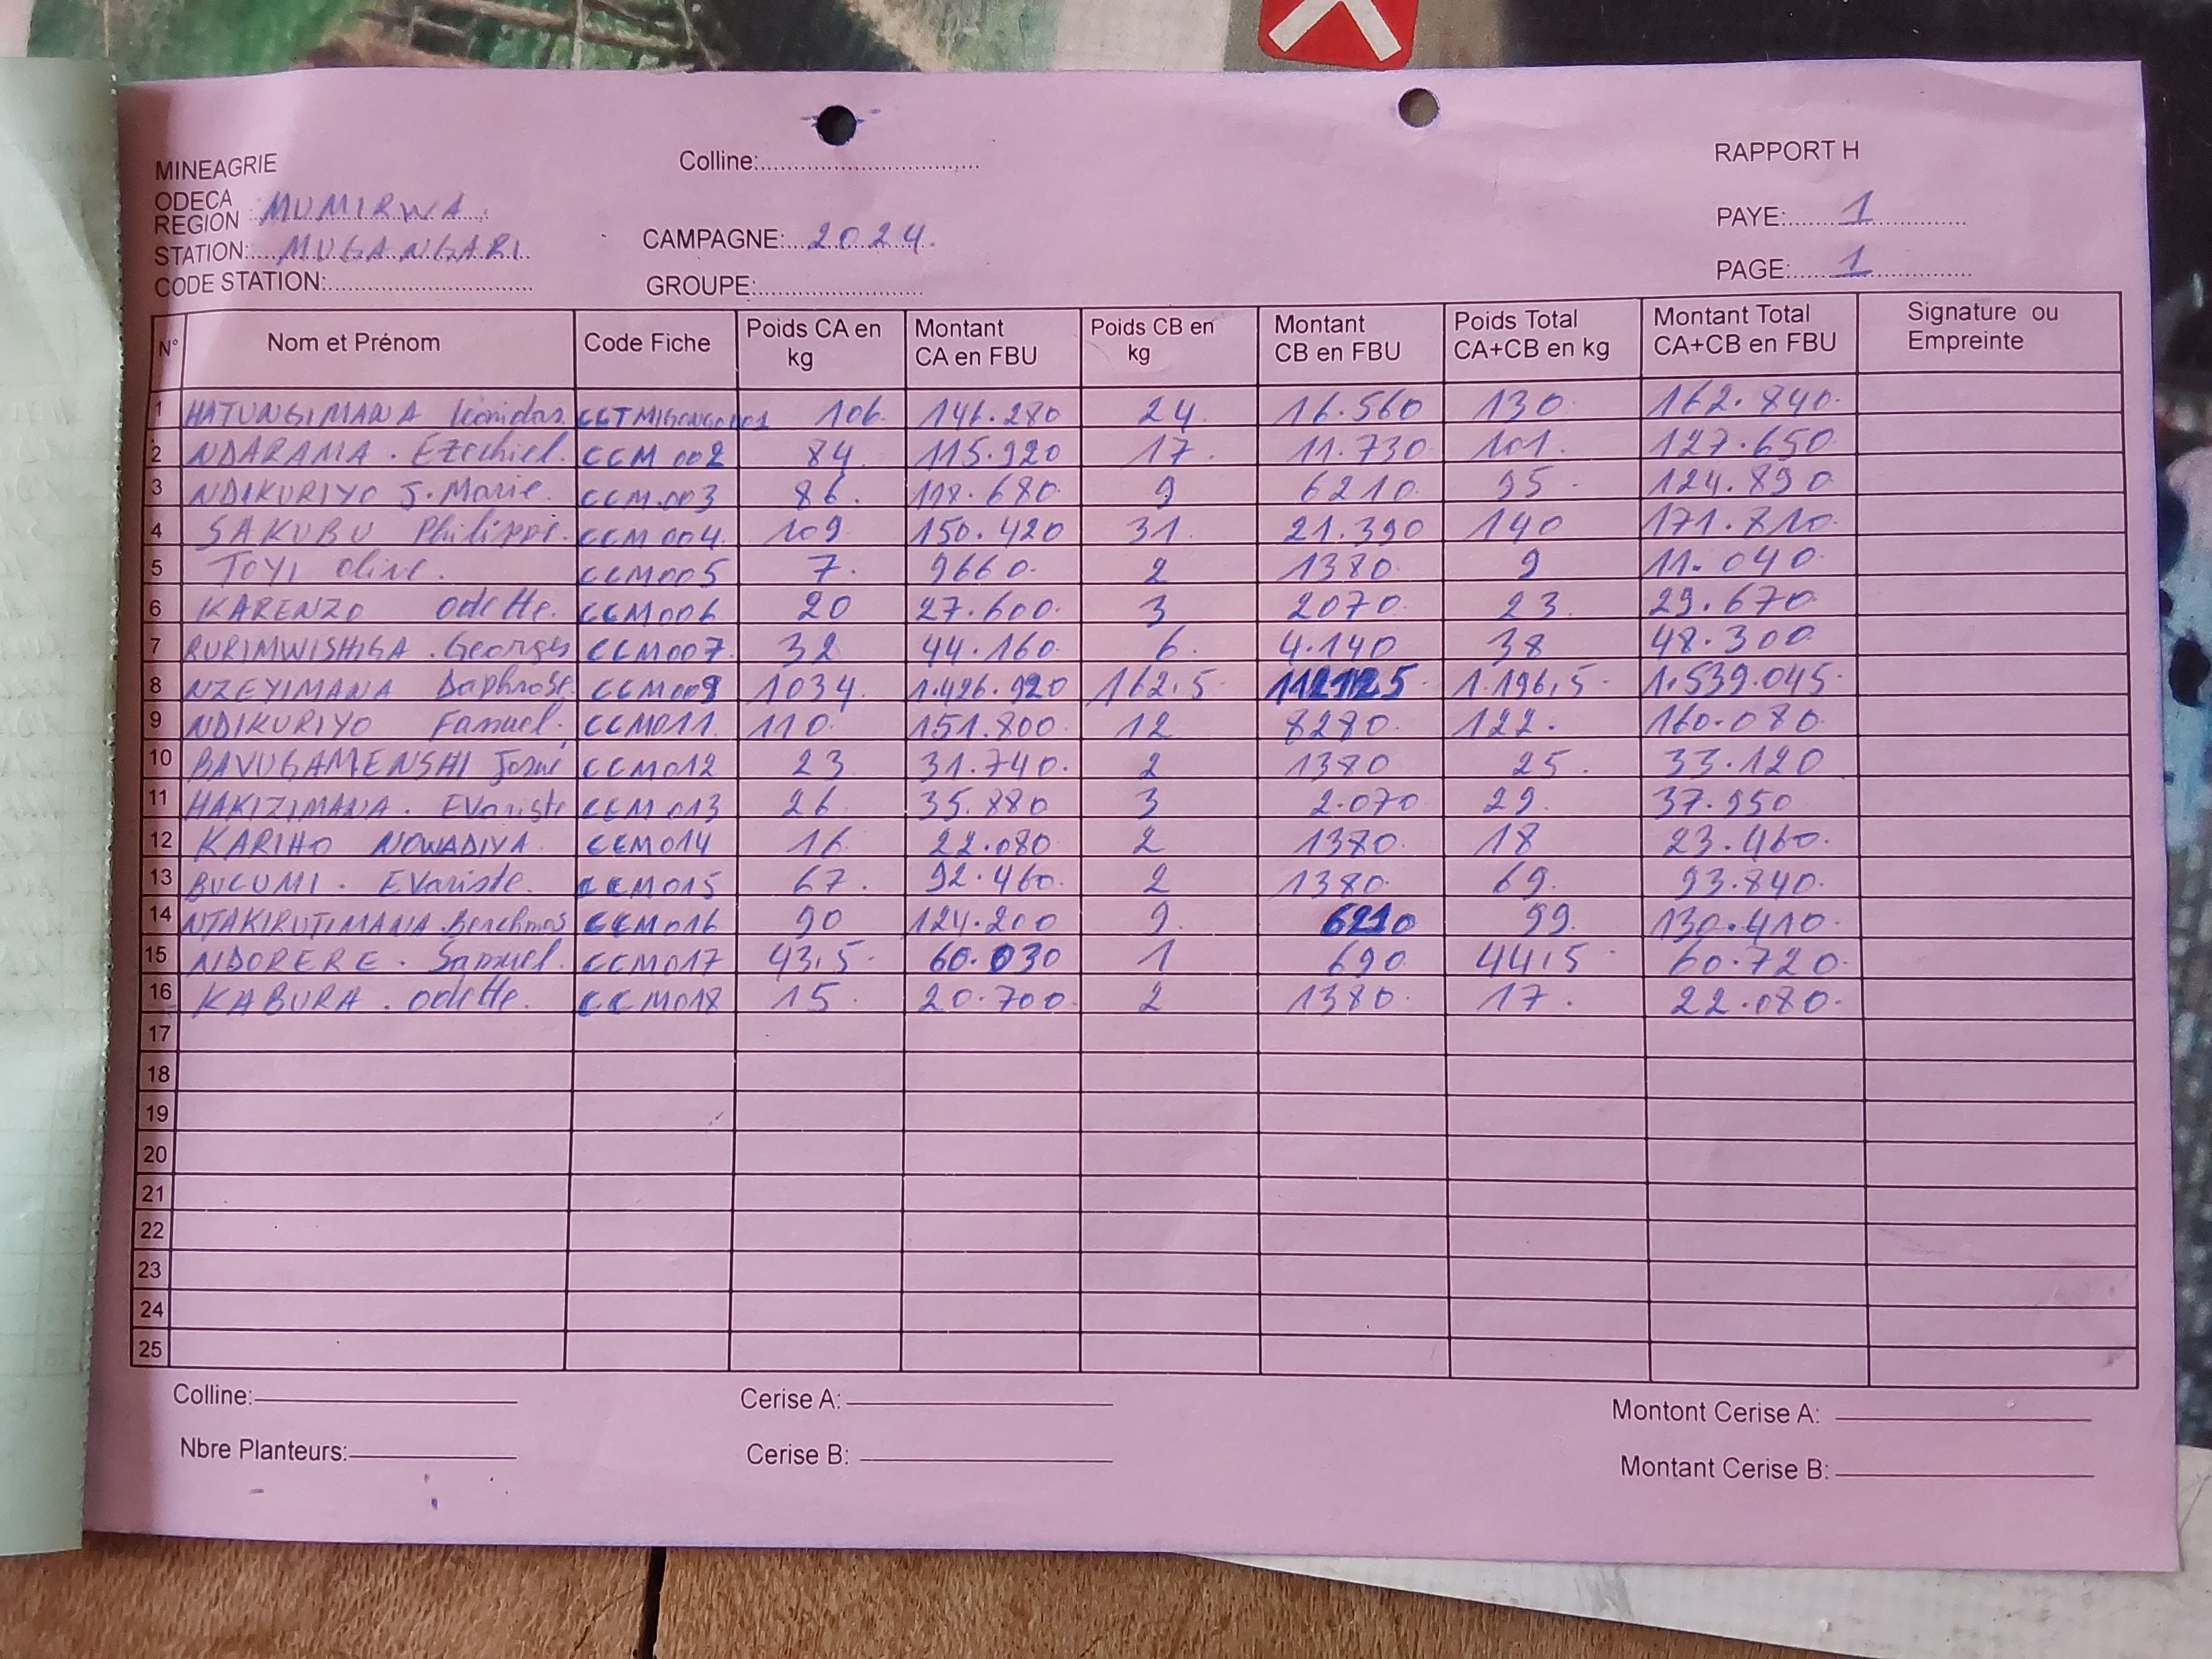 MINEAGRIE
ODECA
REGION : MUMIRWA
STATION: MUGANGARI
CODE STATION:
Colline:
CAMPAGNE: 2024
GROUPE:
RAPPORT H
PAYE: 1
PAGE: 1
N° Nom et Prénom Code Fiche Poids CA en kg Montant CA en FBU Poids CB en kg Montant CB en FBU Poids Total CA+CB en kg Montant Total CA+CB en FBU Signature ou Empreinte
1 HATUNGIMANA Léonidas 106 146.280 24 16.560 130 162.840
2 NDARAMA . Ezechiel. CCM 002 84 115.920 17 11.730 101 127.650
3 NDIKURIYO J. Marie. CCM.003 86 118.680 9 6210 95 124.890
4 SAKUBU Philippe. CCM 004 109 150.420 31 21.390 140 171.810
5 TOYI olive. CCM005 7 9660 2 1380 9 11.040
6 KARENZO odette. CCM006 20 27.600 3 2070 23 29.670
7 RURIMWISHIGA . Georges CCM007 32 44.160 6 4.140 38 48.300
8 NZEYIMANA Daphrose. CCM009 1034 1.426.920 162,5 112125 1.196,5 1.539.045
9 NDIKURIYO Fanuel. CCM011 110 151.800 12 8280 122 160.080
10 BAVUGAMENSHI Josué CCM012 23 31.740 2 1380 25 33.120
11 HAKIZIMANA . Evariste CCM 013 26 35.880 3 2.070 29 37.950
12 KARIHO NOWADIYA CCM014 16 22.080 2 1380 18 23.460
13 BUCUMI . Evariste. CCM015 67 92.460 2 1380 69 93.840
14 NTAKIRUTIMANA . Berchmas CCM016 90 124.200 9 6210 99 130.410
15 NDORERE . Samuel. CCM017 43,5 60.030 1 690 44,5 60.720
16 KABURA . odette. CCM018 15 20.700 2 1380 17 22.080
17
18
19
20
21
22
23
24
25
Colline:
Nbre Planteurs:
Cerise A:
Cerise B:
Montont Cerise A:
Montant Cerise B: